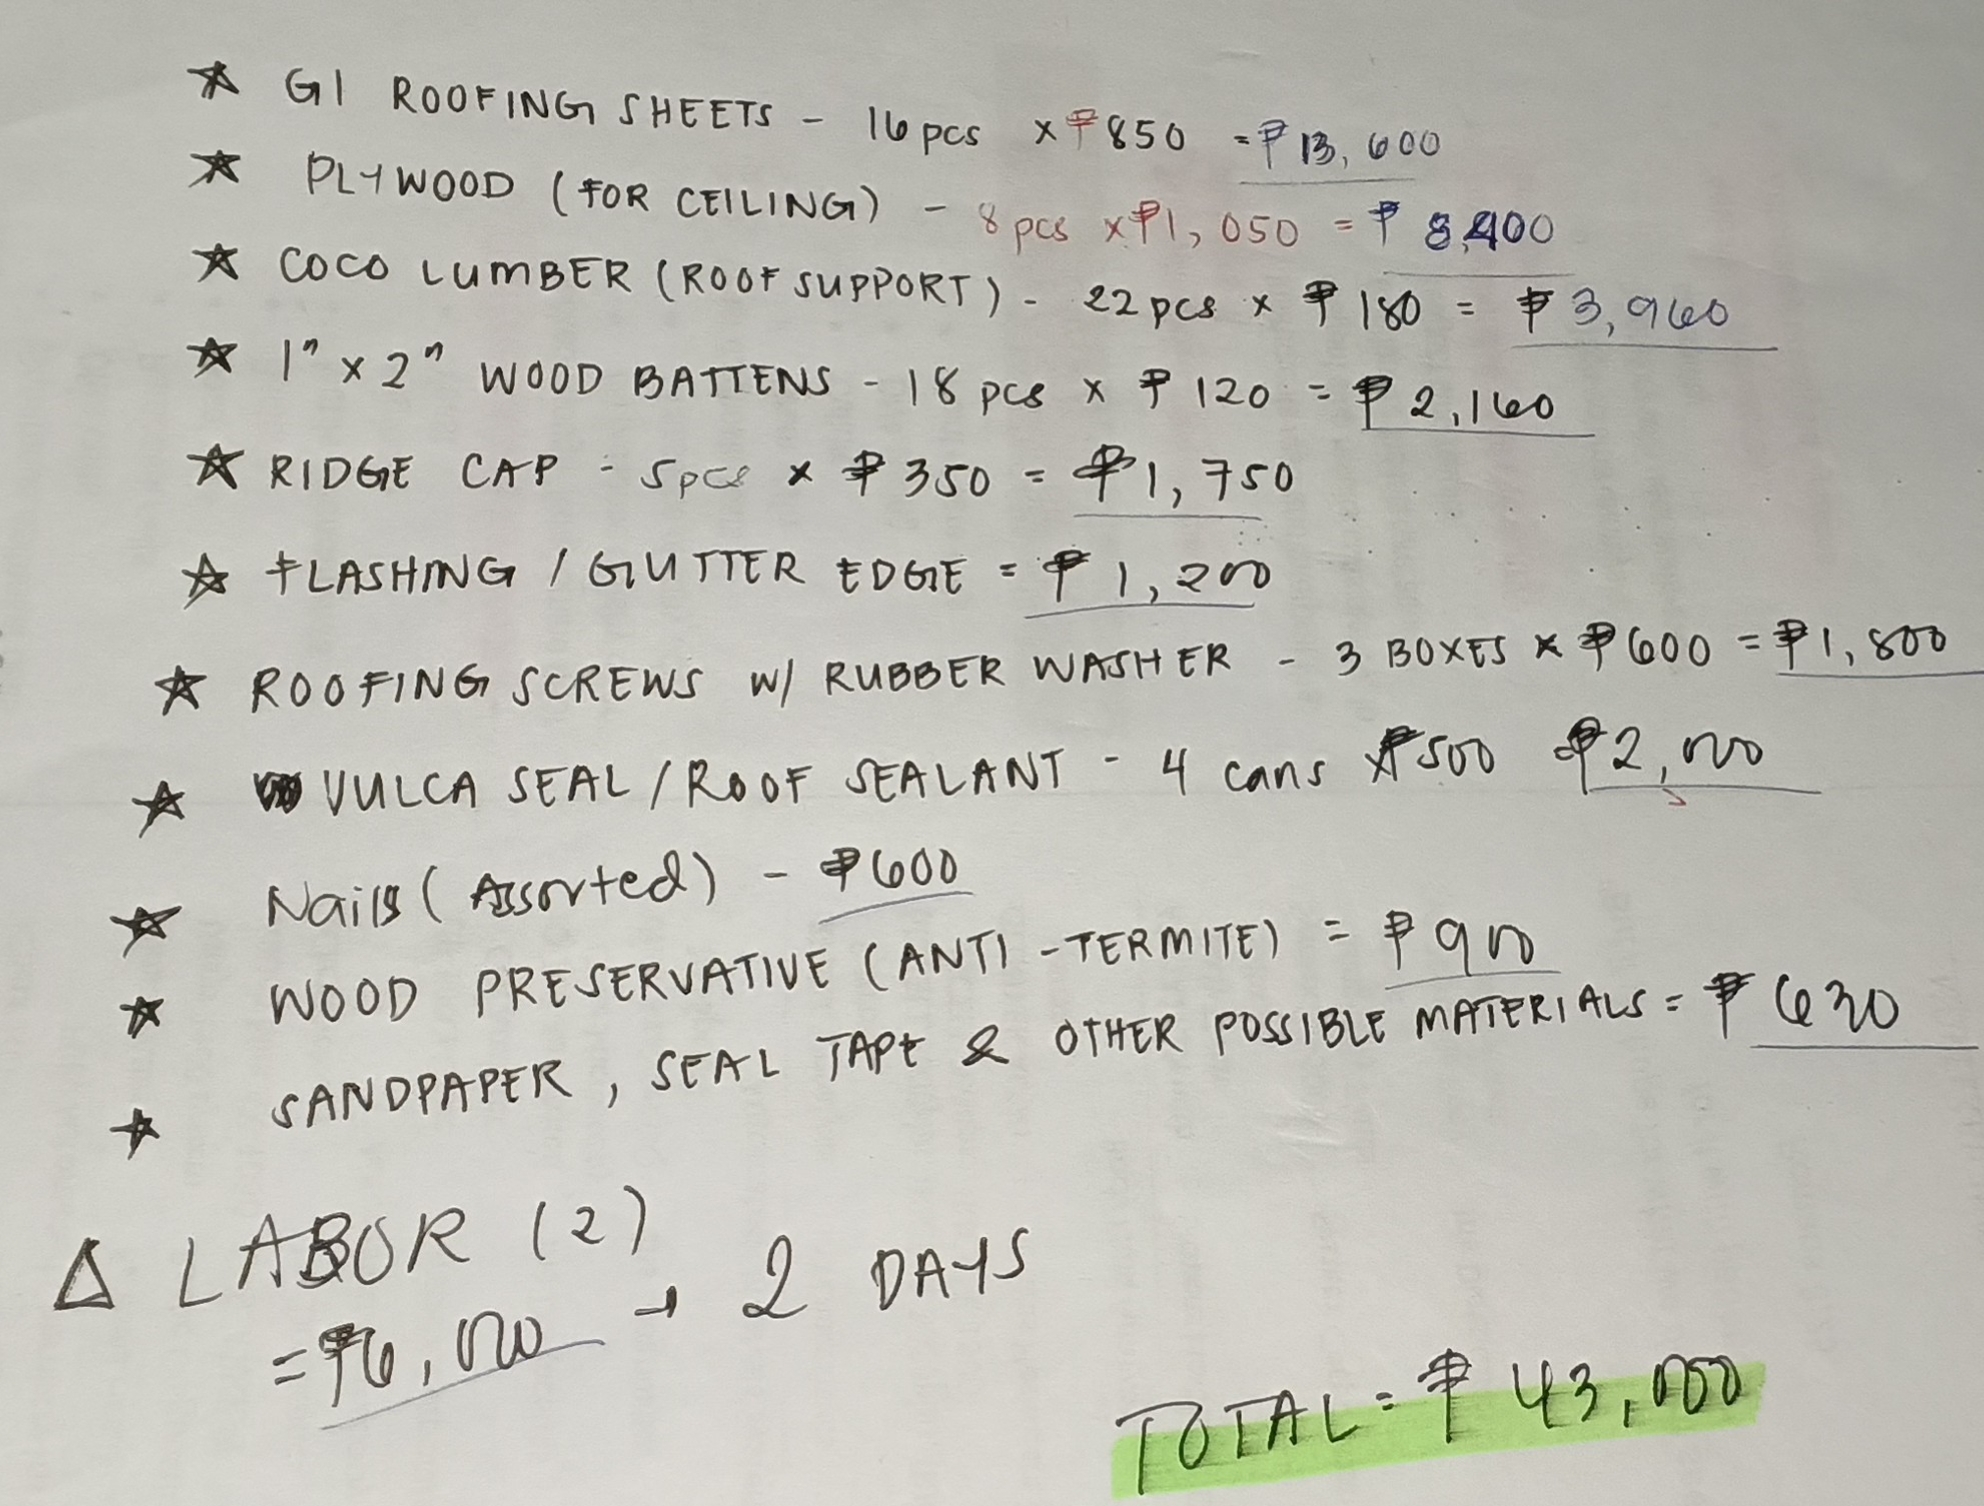 ☆ GI ROOFING SHEETS - 16 pcs x ₱850 = ₱13,600
☆ PLYWOOD (FOR CEILING) - 8 pcs x ₱1,050 = ₱8,400
☆ COCO LUMBER (ROOF SUPPORT) - 22 pcs x ₱180 = ₱3,960
☆ 1" x 2" WOOD BATTENS - 18 pcs x ₱120 = ₱2,160
☆ RIDGE CAP - 5 pcs x ₱350 = ₱1,750
☆ FLASHING / GUTTER EDGE = ₱1,200
☆ ROOFING SCREWS W/ RUBBER WASHER - 3 BOXES x ₱600 = ₱1,800
☆ VULCA SEAL / ROOF SEALANT - 4 cans x ₱500 ₱2,000
☆ Nails (Assorted) - ₱600
☆ WOOD PRESERVATIVE (ANTI-TERMITE) = ₱900
☆ SANDPAPER, SEAL TAPE & OTHER POSSIBLE MATERIALS = ₱630
△ LABOR (2)
= ₱6,000 → 2 DAYS
TOTAL = ₱43,000